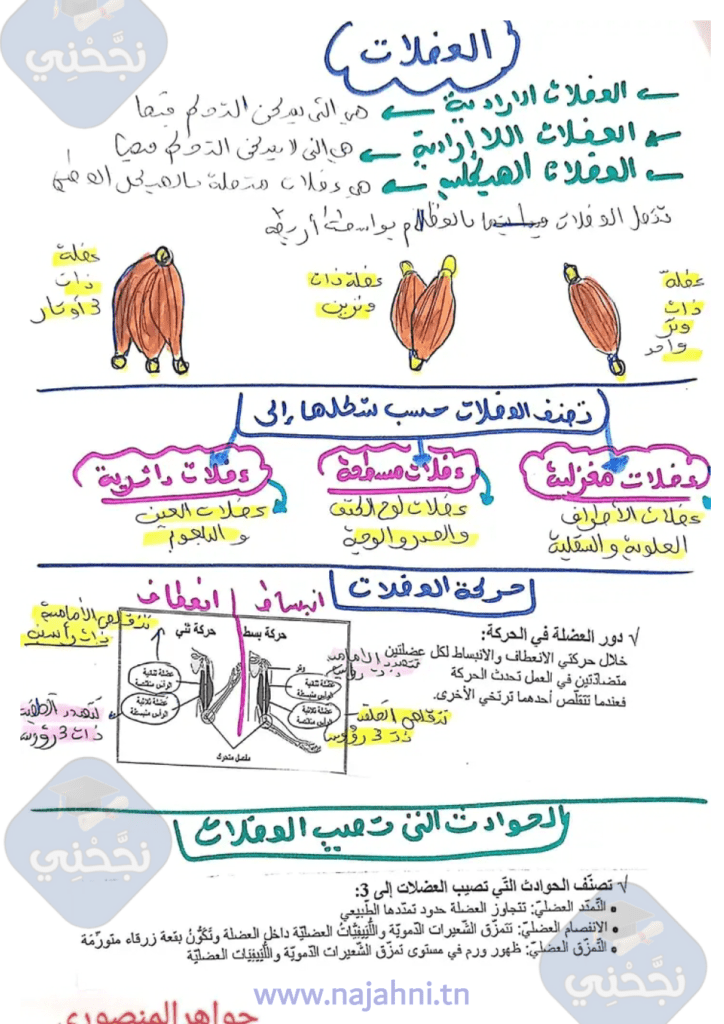 نجّحْنِي
العضلات
العضلات الارادية ← هي التي يمكن التحكم فيها
العضلات اللاارادية ← هي التي لا يمكن التحكم فيها
العضلات الهيكلية ← هي عضلات متصلة بالهيكل العظمي
تتصل العضلات بالعظام بواسطة أربطة
عضلة ذات 3 أوتار
عضلة ذات وترين
عضلة ذات وتر واحد
تصنف العضلات حسب شكلها إلى
عضلات مغزلية
عضلات مسطحة
عضلات دائرية
عضلات الأطراف العلوية والسفلية
عضلات لوح الكتف والصدر والوجه
عضلات العين والبلعوم
حركة العضلات
انبساط
انعطاف
√ دور العضلة في الحركة:
خلال حركتي الانعطاف والانبساط لكل عضلتين
متضادّتين في العمل تحدث الحركة
فعندما تتقلّص أحدهما ترتخي الأخرى.
تتقلص الأمامية ذات رأسين
تتمدد الخلفية ذات 3 رؤوس
تتمدد الأمامية
تتقلص الخلفية
ذات 3 رؤوس
حركة بسط
حركة ثني
وتر
عضلة ثنائية الرأس متقلصة
عضلة ثلاثية الرأس منبسطة
عضلة ثنائية الرأس منبسطة
عضلة ثلاثية الرأس متقلصة
مفصل متحرك
الحوادث التي تصيب العضلات
√ تصنّف الحوادث التّي تصيب العضلات إلى 3:
• التّمدّد العضليّ: تتجاوز العضلة حدود تمدّدها الطّبيعي
• الانفصام العضليّ: تتمزّق الشّعيرات الدّمويّة واللُّيَيْفِيَّاتُ العضليّة داخل العضلة وتَكَوُّنُ بقعة زرقاء متورّمة
• التّمزّق العضليّ: ظهور ورم في مستوى تمزّق الشّعيرات الدّمويّة واللُّيَيْفِيَات العضليّة
نجّحْنِي
نجّحْنِي
www.najahni.tn
جواهر المنصوري